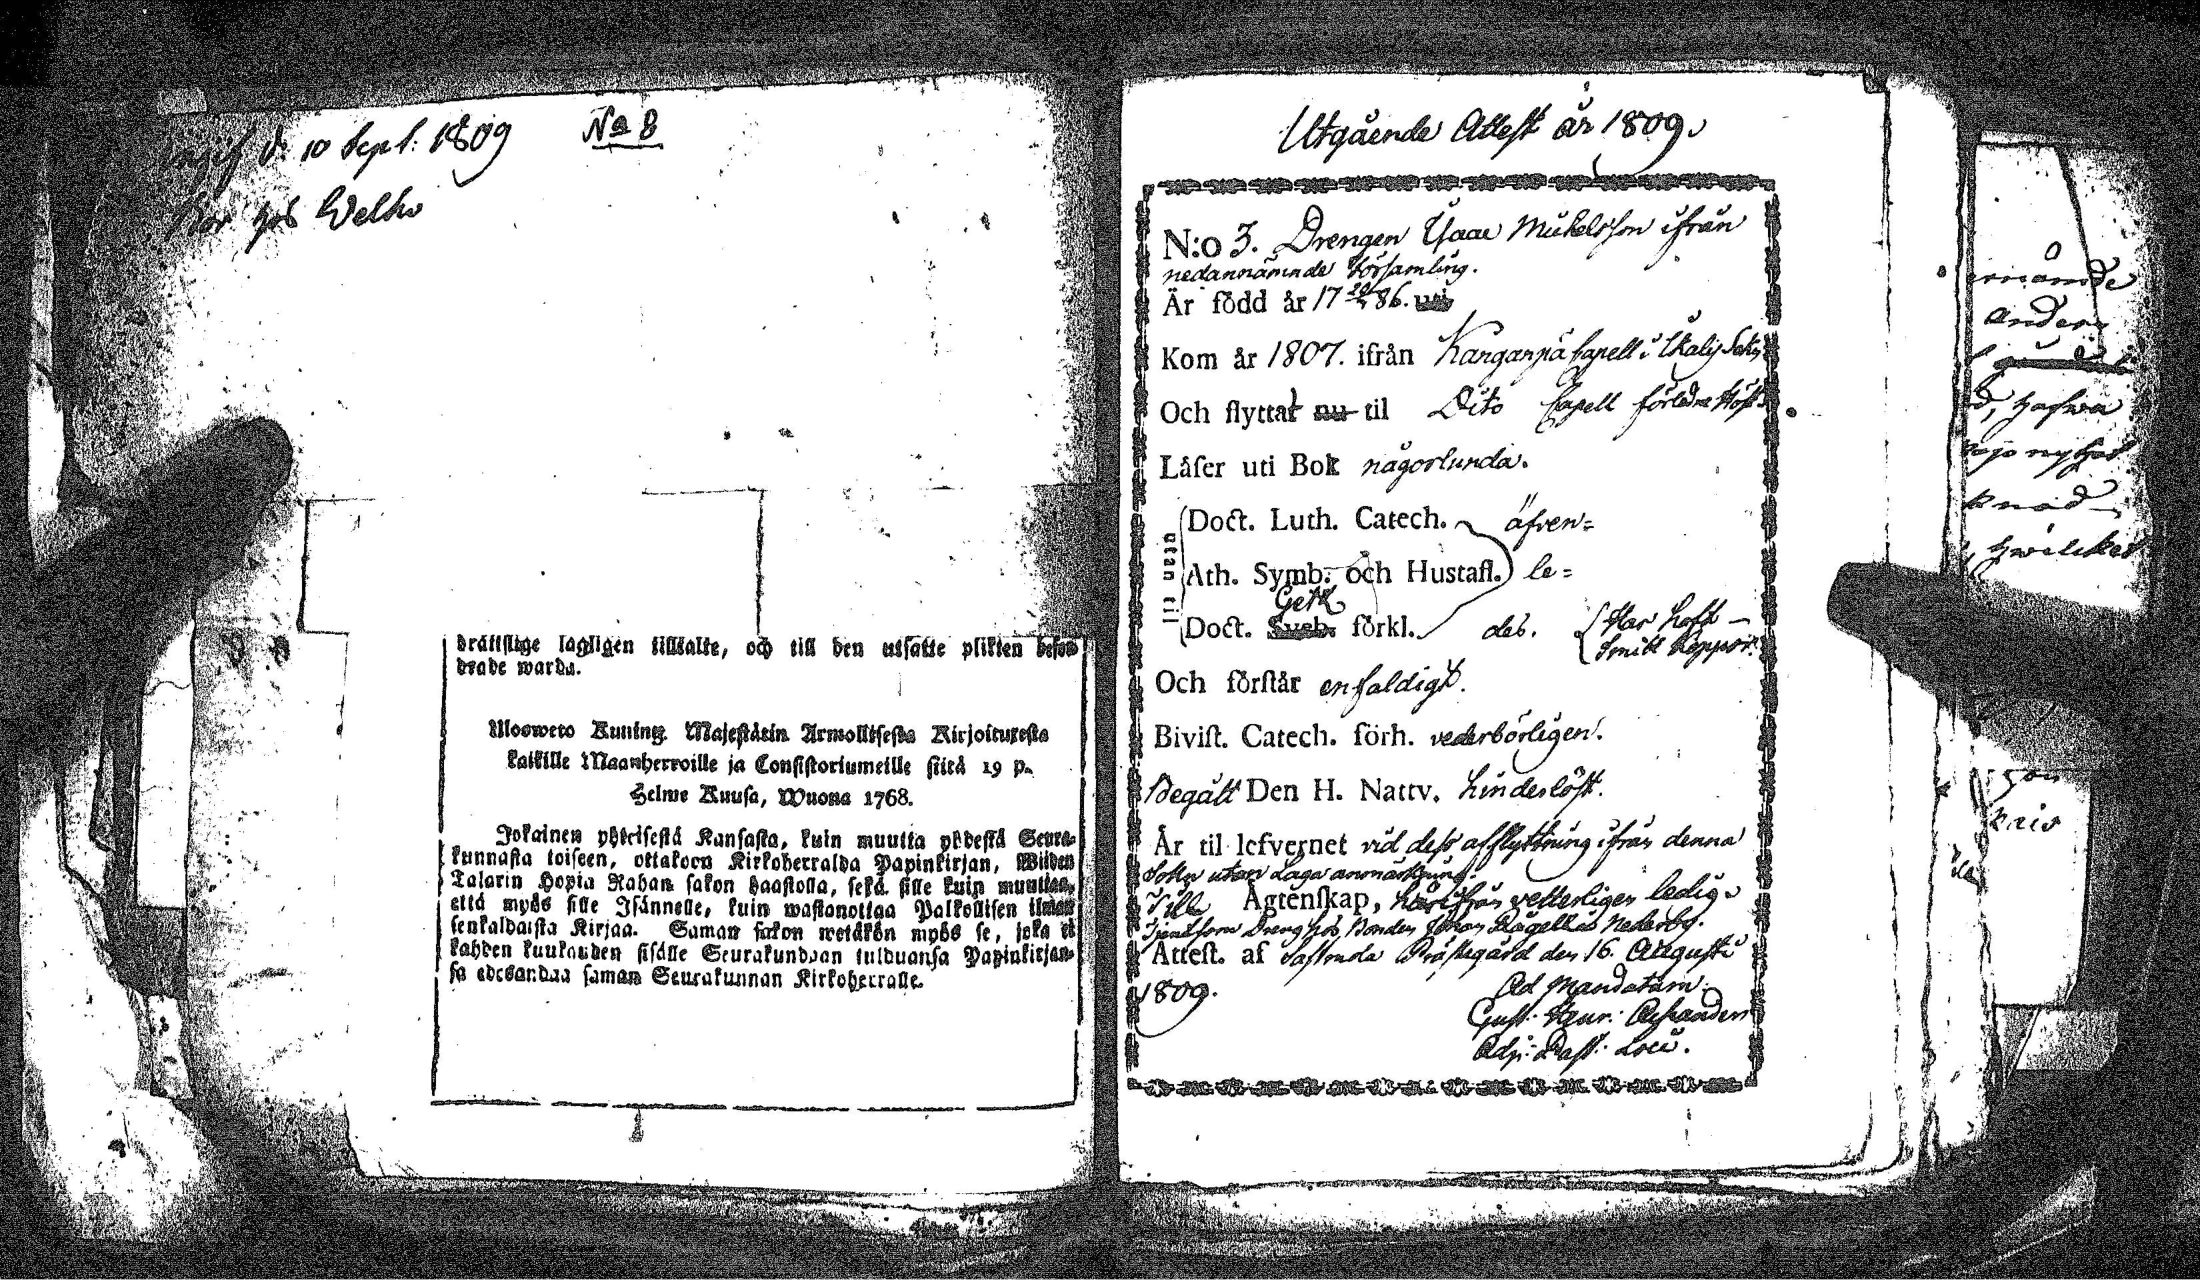 d. 10 Sept: 1809 No 8
hos Welho
drättslige lagligen tilltalte, och till den utsatte plikten befor-
drade warda.
Ulosweto Kuning. Majestätin Armollisesta Kirjoituxesta
kaikille Maanherroille ja Consistoriumeille siitä 19 p.
Helme Kuusa, Wuona 1768.
Jokainen yhteisestä Kansasta, kuin muutta yhdestä Seura-
kunnasta toiseen, ottakoon Kirkoherralda Papinkirjan, Wiiden
Talarin Hopia Rahan sakon haastolla, sekä sille kuin muuttaa,
että myös sille Isännelle, kuin wastanottaa Palkollisen ilman
senkaldaista Kirjaa. Saman sakon wetäkön myös se, joka ei
kahden kuukauden sisälle Seurakundaan tulduansa Papinkirjan-
sa edesandaa saman Seurakunnan Kirkoherralle.
Utgående Attest år 1809.
N:o 3. Drengen Isaac Michelsson ifrån
nedannämnde församling.
Är född år 17 86. uti
Kom år 1807. ifrån Kanganpä Capell i Ikalis Sokn
Och flyttat nu til Dito Capell förledne Höst.
Läser uti Bok någorlunda.
utan til
Doct. Luth. Catech. äfven=
Ath. Symb. och Hustafl. le=
Getz
Doct. Sveb. förkl. des. Har haft
Smitt Koppor.
Och förstår enfaldigt.
Bivist. Catech. förh. vederbörligen.
Begått Den H. Nattv. hinderlöst.
Är til lefvernet vid dess afflyttning ifrån denna
Sokn utan Laga anmärkning.
Till Ägtenskap, härifrån vetterligen ledig.
Tjent som Dreng hos Bonden Johan Nederby.
Attest. af Sastmola Prästegård den 16. Augusti
1809. Ad Mandatum
Gust: Henr:
Adj: Past: Loci.
ernämde
Ander
hafwa
knad
hwilket